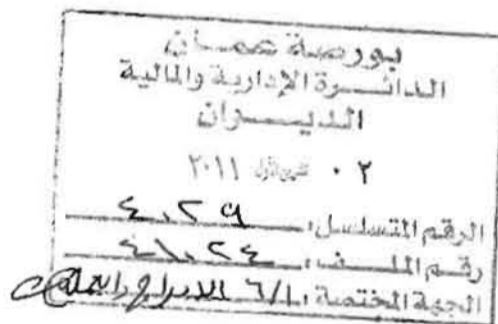 بورصة عمان
الدائرة الإدارية والمالية
الديوان
٠٢ تشرين أول ٢٠١١
الرقم المتسلسل: ٤٠٢٩
رقم الملف: ٤١٠٢٤
الجهة المختصة: ٦/١ الادراج